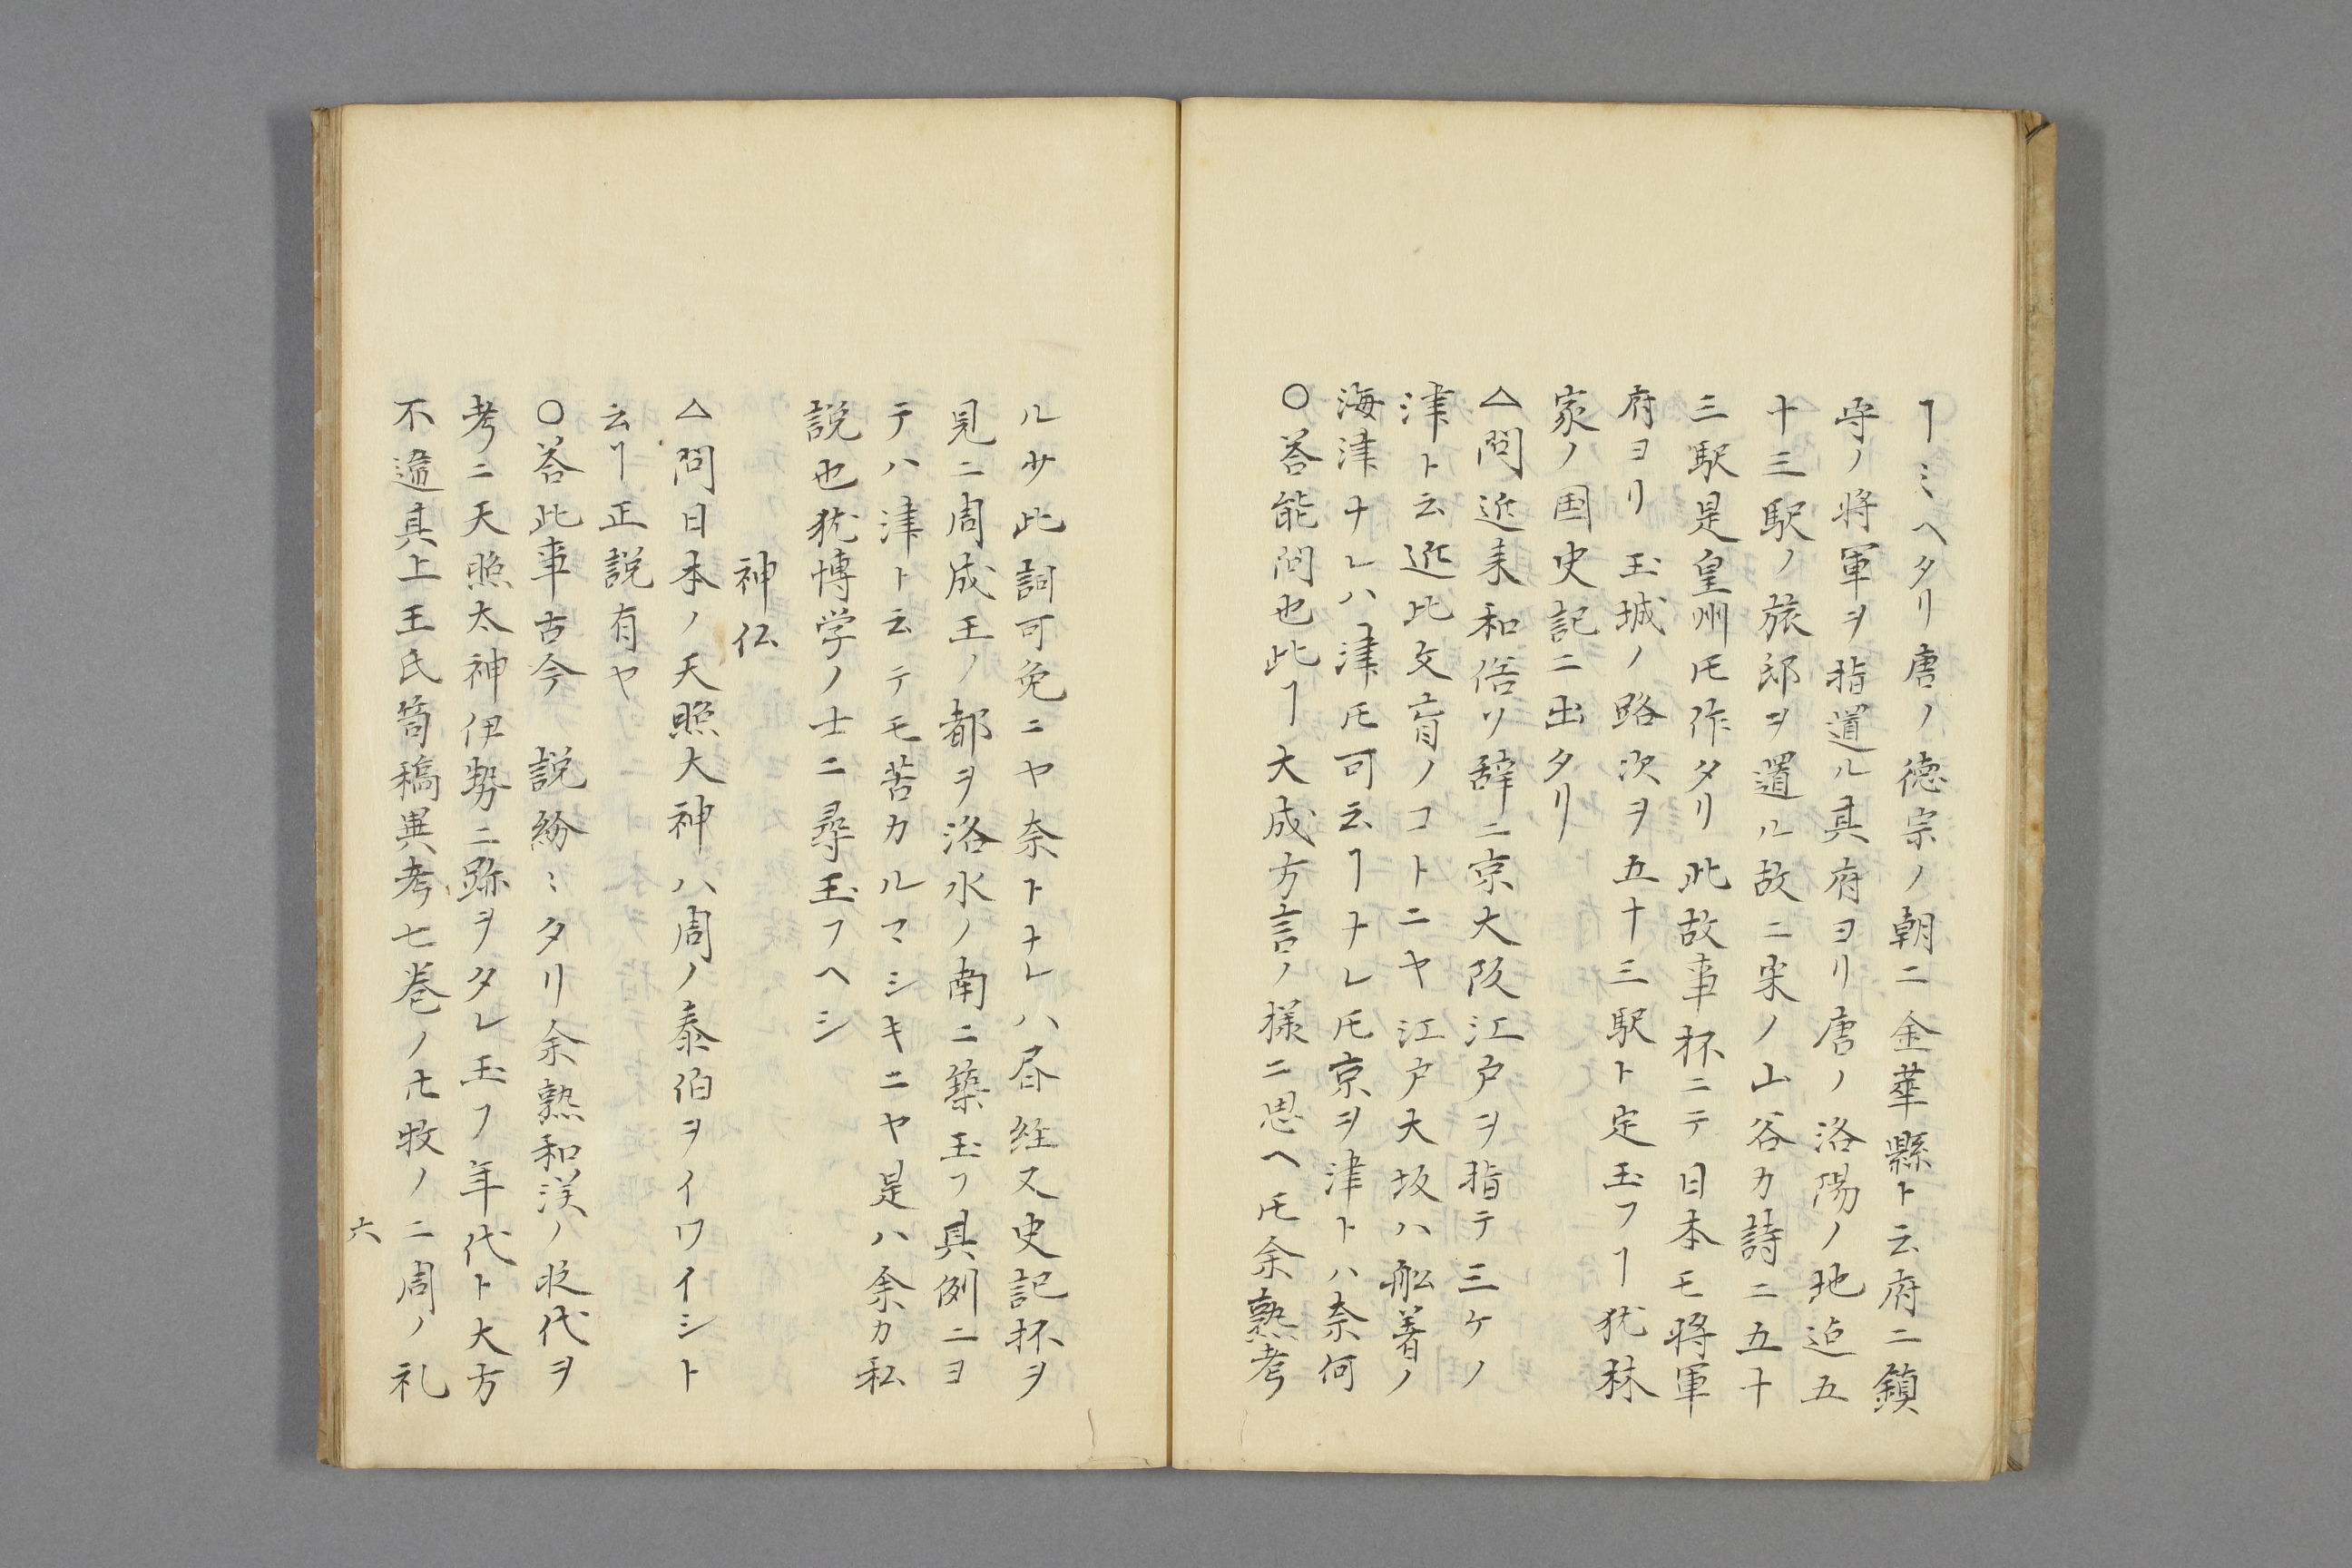 ヿミヘタリ唐ノ徳宗ノ朝ニ金華縣ト云府ニ鎮
守ノ将軍ヲ指遣ル其府ヨリ唐ノ洛陽ノ地迠五
十三駅ノ旅郎ヲ還ル故ニ宋ノ山谷カ詩ニ五十
三駅是皇州㠪作タリ此故事杯ニテ日本モ将軍
府ヨリ玉城ノ路次ヲ五十三駅ト定玉フヿ犹林
家ノ国史記ニ出タリ
△問近来和俗リ辞ニ京大阪江戸ヲ指テ三ケノ
津ト云近比文盲ノコトニヤ江戸大坂ハ舩着ノ
海津ナレハ津㠪可云ヿナレ㠪京ヲ津トハ奈何
○答能問也此ヿ大成方言ノ様ニ思ヘ㠪余熟考
ル少此詞可免ニヤ奈トナレハ昏経又史記杯ヲ
見ニ周成王ノ都ヲ洛水ノ南ニ築玉フ具例ニヨ
テハ津ト云テモ苦カルマシキニヤ是ハ余カ私
説也犹博学ノ士ニ尋玉フヘシ
神仏
△問日本ノ天照大神ハ周ノ泰伯ヲイワイシト
云ヿ正説有ヤ
○答此事古今 説紛ミタリ余熟和漢ノ年代ヲ
考ニ天照太神伊勢ニ跡ヲタレ玉フ年代ト大方
不遠具上王氏筒稿異考七巻ノ㠪牧ノニ周ノ礼
六